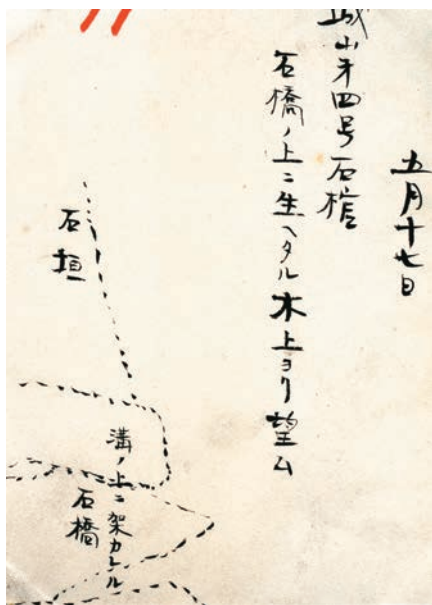 五月十七日
城山才四号石棺
石橋ノ上ニ生ヘタル木上ヨリ望ム
石垣
溝ノ上ニ架カレル
石橋